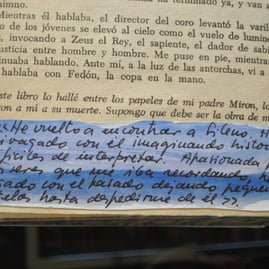 himno.
Mientras él hablaba, el director del coro levantó la varilla
de los jóvenes se elevó al cielo como el vuelo de lumin
, invocando a Zeus el Rey, el sapiente, el dador de sabi
usticia entre hombre y hombre. Me puse en pie, mientr
ntinuaba hablando. Ante mí, a la luz de las antorchas, vi a
hablaba con Fedón, la copa en la mano.
ste libro lo hallé entre los papeles de mi padre Miron, lo
ron a mí a su muerte. Supongo que debe ser la obra de m
<<He vuelto a encontrar a
vagado con él imaginando histor
difíciles de interpretar. Apasionada
seres que me iba recordando, he
con el pasado dejando peque
hasta despedirme de él>>.